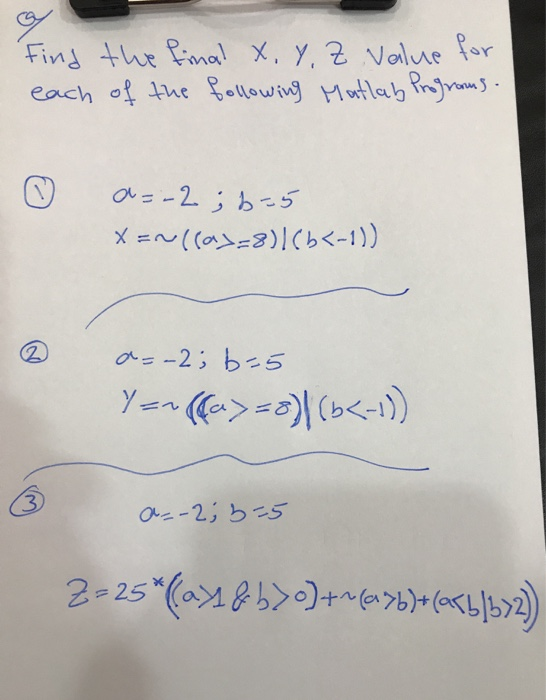 Q
Find the final X, Y, Z Value for
each of the following Matlab Programs.
① a=-2 ; b=5
X=~((a>=8)|(b<-1))
② a=-2; b=5
Y=~((a>=8)|(b<-1))
③ a=-2; b=5
Z=25*((a>1&b>0)+~(a>b)+(a<b|b>2))